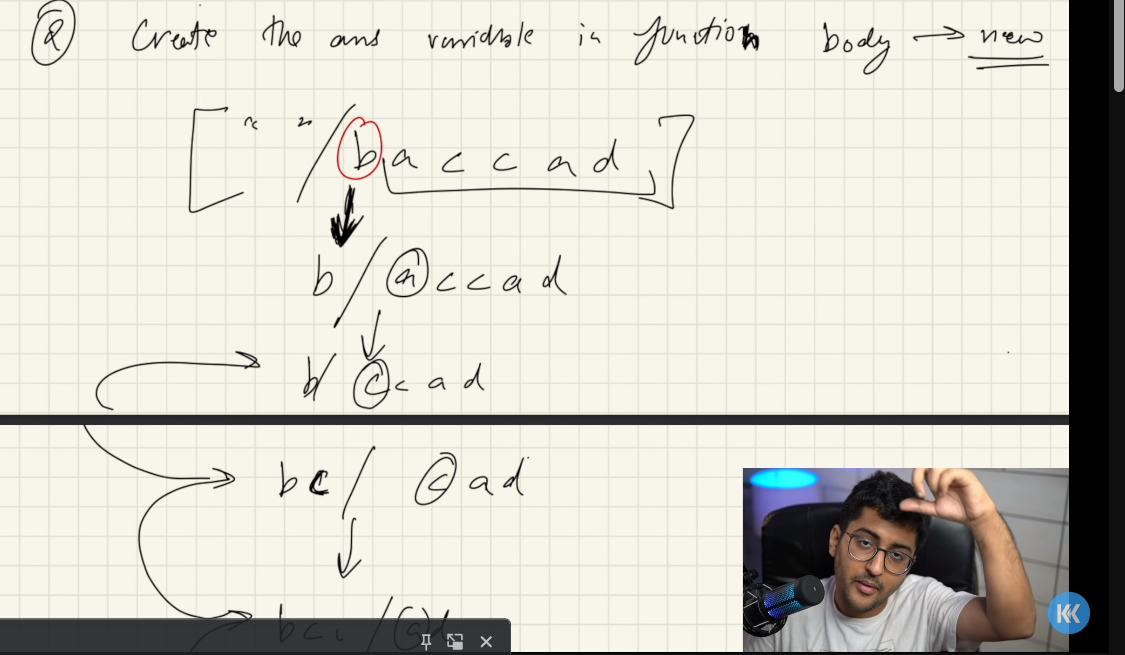 ② Create the ans variable in function body → new
[ " " / b a c c a d ]
b / a c c a d
b / c c a d
bc / c a d
bcc / a d
KK